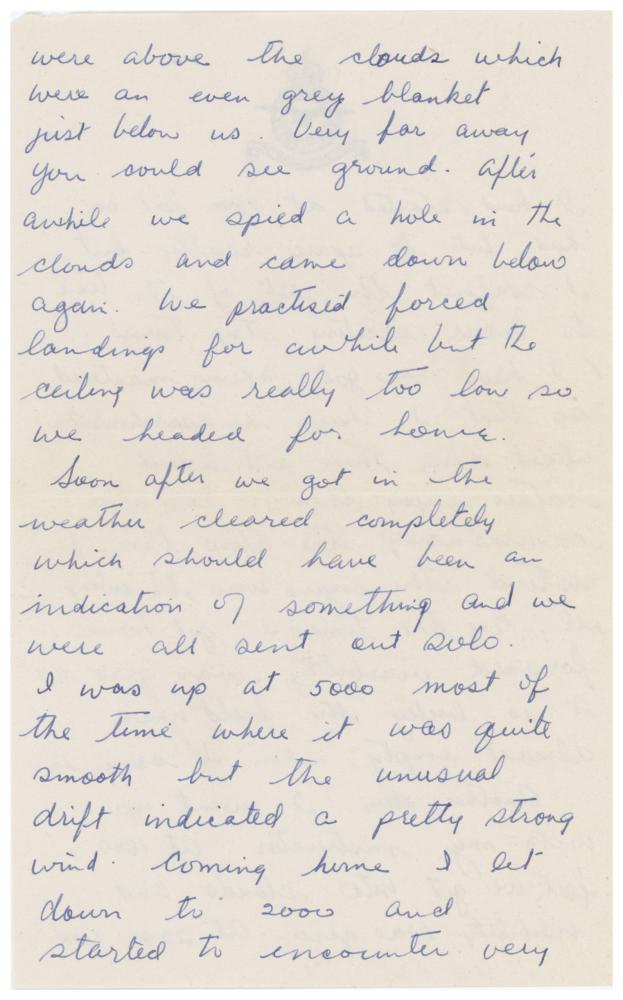 were above the clouds which
were an even grey blanket
just below us. Very far away
you could see ground. After
awhile we spied a hole in the
clouds and came down below
again. We practised forced
landings for awhile but the
ceiling was really too low so
we headed for home.
Soon after we got in the
weather cleared completely
which should have been an
indication of something and we
were all sent out solo.
I was up at 5000 most of
the time where it was quite
smooth but the unusual
drift indicated a pretty strong
wind. Coming home I let
down to 2000 and
started to encounter very